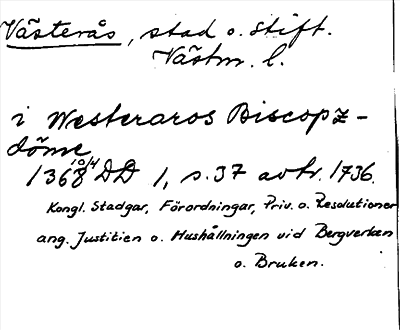 Västerås, stad o. stift.
Västm. l.
i Westeraros Biscopz-
döme
1368 10/4 DD 1, s. 37 avtr. 1736.
Kongl. Stadgar, Förordningar, Priv. o. Resolutioner
ang. Justitien o. Hushållningen vid Bergverken
o. Bruken.